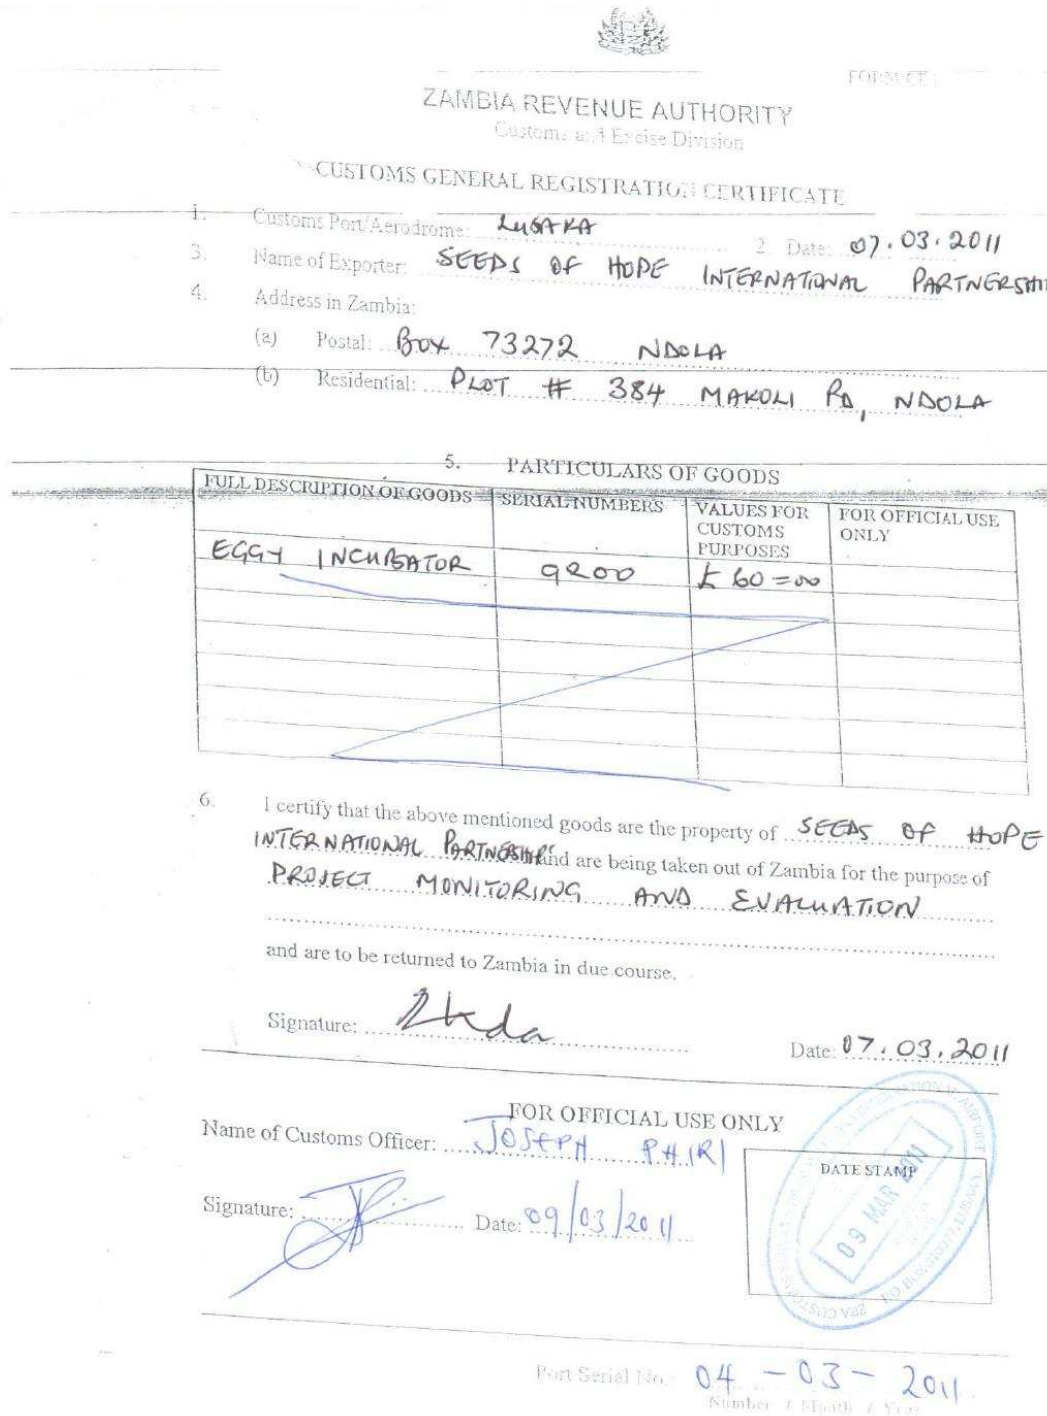 FORM CE
ZAMBIA REVENUE AUTHORITY
Customs and Excise Division
CUSTOMS GENERAL REGISTRATION CERTIFICATE
1. Customs Port/Aerodrome: LUSAKA 2. Date: 07.03.2011
3. Name of Exporter: SEEDS OF HOPE INTERNATIONAL PARTNERSHI
4. Address in Zambia:
(a) Postal: BOX 73272 NDOLA
(b) Residential: PLOT # 384 MAKOLI RD, NDOLA
5. PARTICULARS OF GOODS
FULL DESCRIPTION OF GOODS SERIAL NUMBERS VALUES FOR CUSTOMS PURPOSES FOR OFFICIAL USE ONLY
EGGY INCUBATOR 9200 £ 60=00
6. I certify that the above mentioned goods are the property of SEEDS OF HOPE
INTERNATIONAL PARTNERSHIPS and are being taken out of Zambia for the purpose of
PROJECT MONITORING AND EVALUATION
and are to be returned to Zambia in due course.
Signature:
Date: 07.03.2011
FOR OFFICIAL USE ONLY
Name of Customs Officer: JOSEPH PHIRI
DATE STAMP
09 MAR 2011
Signature: Date: 09/03/2011
Port Serial No: 04 - 03 - 2011
Number / Month / Year